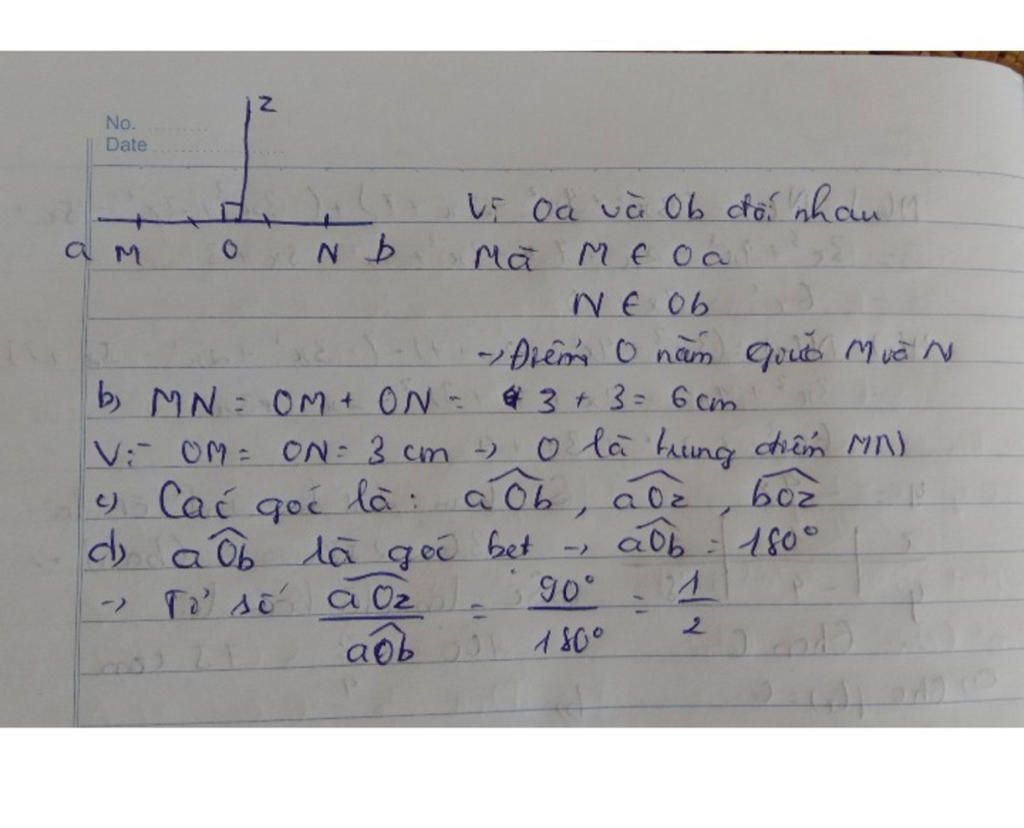 No.
Date
z
a M O N b
Vì Oa và Ob đối nhau
Mà M ∈ Oa
N ∈ Ob
→ Điểm O nằm giữa M và N
b) MN = OM + ON = 3 + 3 = 6 cm
Vì OM = ON = 3 cm → O là trung điểm MN
c) Các góc là: aÔb, aÔz, bÔz
d) aÔb là góc bẹt → aÔb = 180°
→ Tỉ số aÔz / aÔb = 90° / 180° = 1/2